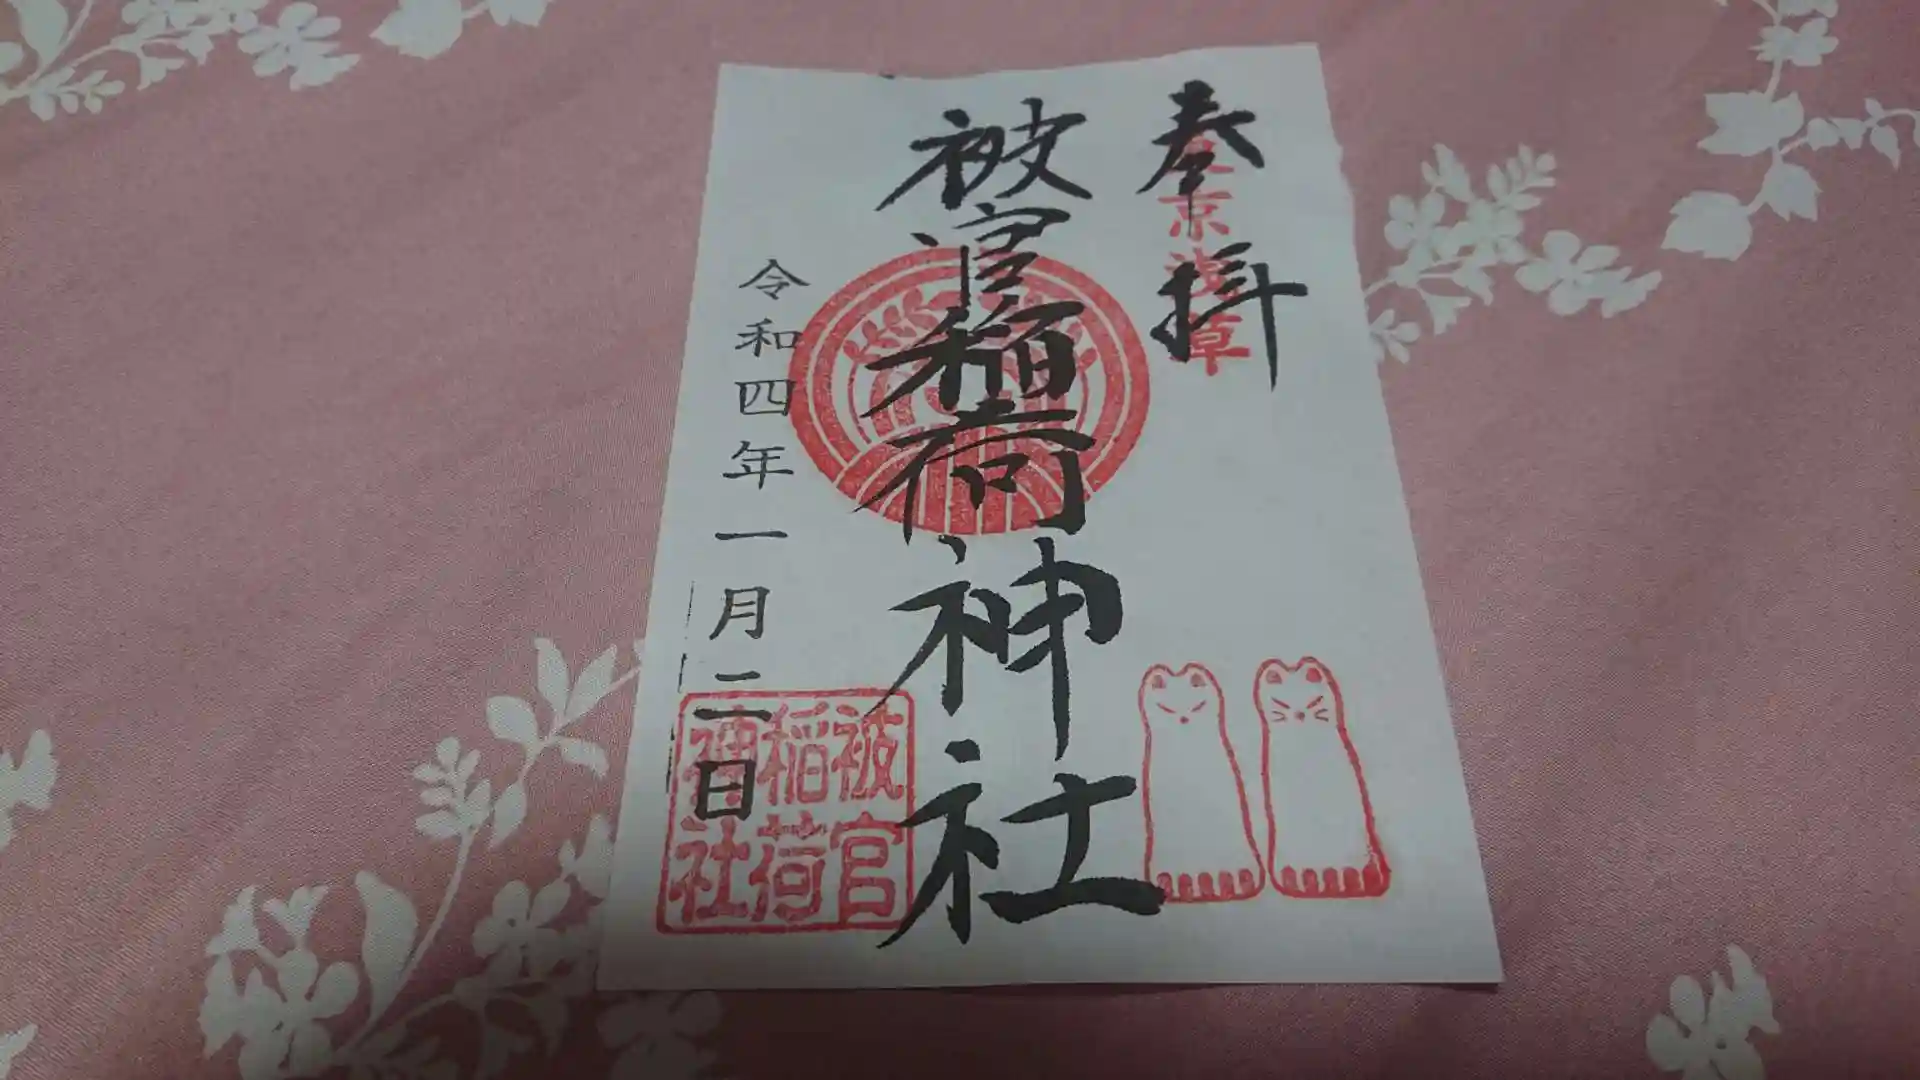 奉拝
東京浅草
被官稲荷神社
令和四年一月二日
被官
稲荷
神社